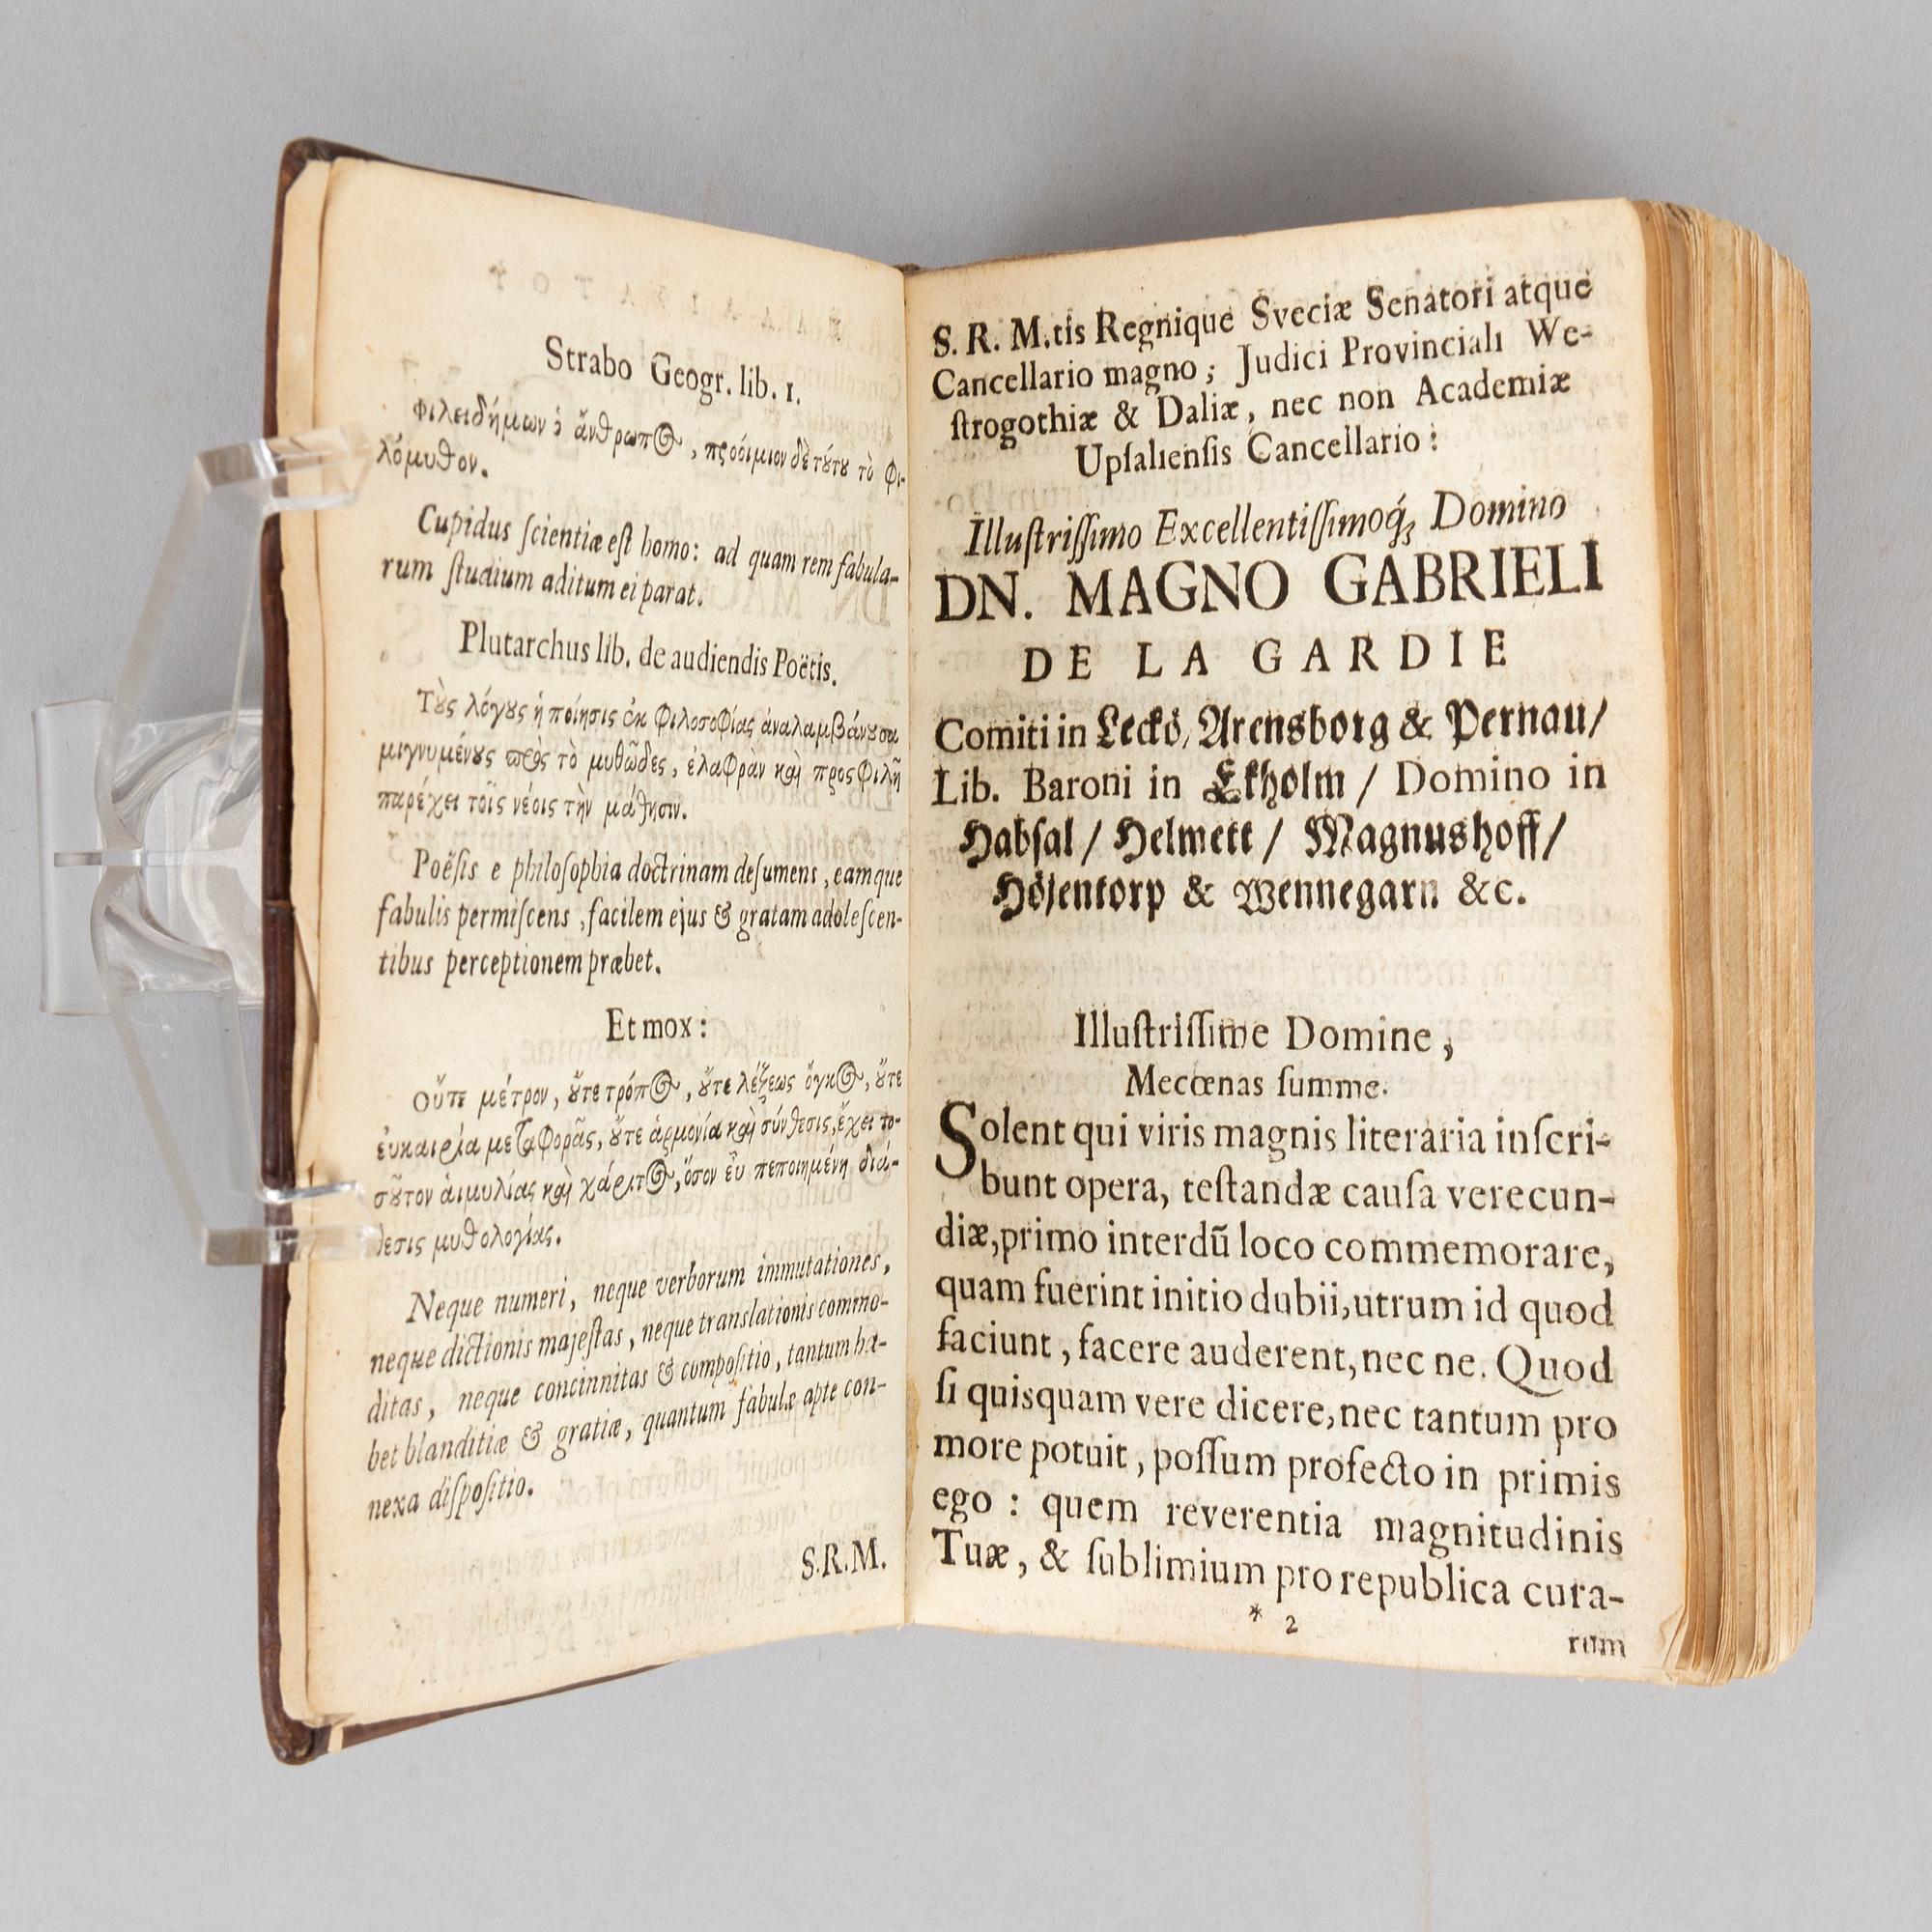 Strabo Geogr. lib. 1.
Φιλειδήμων ὁ ἄνθρωπος, προοίμιον δὲ τούτου τὸ φι-
λόμυθον.
Cupidus ſcientiæ eſt homo: ad quam rem fabula-
rum ſtudium aditum ei parat.
Plutarchus lib. de audiendis Poëtis.
Τοὺς λόγους ἡ ποίησις ἐκ φιλοσοφίας ἀναλαμβάνουσα
μιγνυμένους πρὸς τὸ μυθῶδες, ἐλαφρὰν καὶ προςφιλῆ
παρέχει τοῖς νέοις τὴν μάθησιν.
Poëſis e philoſophia doctrinam deſumens, eamque
fabulis permiſcens, facilem ejus & gratam adoleſcen-
tibus perceptionem præbet.
Et mox:
Οὔτε μέτρον, οὔτε τρόπος, οὔτε λέξεως ὄγκος, οὔτε
ἐυκαιρία μεταφορᾶς, οὔτε ἁρμονία καὶ σύνθεσις, ἔχει το-
σοῦτον αἱμυλίας καὶ χάριτος, ὅσον εὖ πεποιημένη διά-
θεσις μυθολογίας.
Neque numeri, neque verborum immutationes,
neque dictionis majeſtas, neque translationis commo-
ditas, neque concinnitas & compoſitio, tantum ha-
bet blanditiæ & gratiæ, quantum fabulæ apte con-
nexa diſpoſitio.
S.R.M.
S. R. M.tis Regnique Sveciæ Senatori atque
Cancellario magno; Judici Provinciali We-
ſtrogothiæ & Daliæ, nec non Academiæ
Upſalienſis Cancellario:
Illuſtriſſimo Excellentiſſimoq́; Domino
DN. MAGNO GABRIELI
DE LA GARDIE
Comiti in Leckö, Arensborg & Pernau/
Lib. Baroni in Ekholm / Domino in
Habſal / Helmett / Magnushoff/
Höjentorp & Wennegarn &c.
Illuſtriſſime Domine,
Mecœnas ſumme.
Solent qui viris magnis literaria inſcri-
bunt opera, teſtandæ cauſa verecun-
diæ, primo interdū loco commemorare,
quam fuerint initio dubii, utrum id quod
faciunt, facere auderent, nec ne. Quod
ſi quisquam vere dicere, nec tantum pro
more potuit, poſſum profecto in primis
ego: quem reverentia magnitudinis
Tuæ, & ſublimium pro republica cura-
* 2
rum